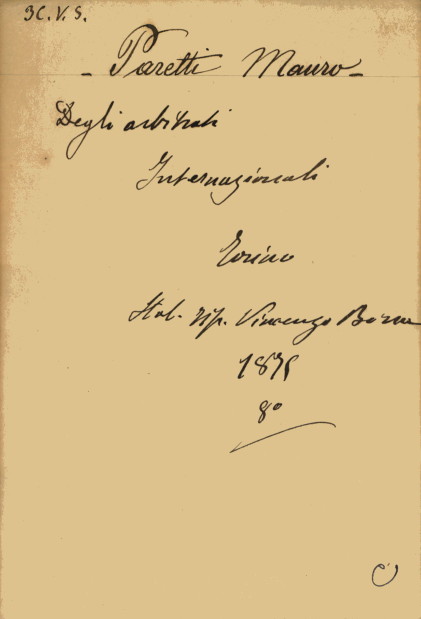 3C.V.S.
- Paretti Mauro -
Degli arbitrati
Internazionali
Torino
Stab. tip. Vincenzo Bona
1875
8°